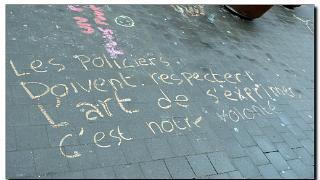 Les Policiers
Doivent respecter
L'art de s'exprimer
C'est notre volonté